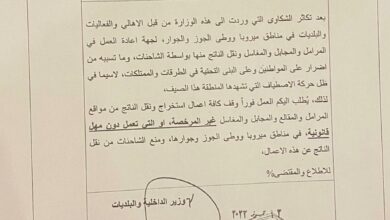 بعد تكاثر الشكاوى التي وردت الى هذه الوزارة من قبل الاهالي والفعاليات
والبلديات في مناطق ميروبا ووطى الجوز والجوار، لجهة اعادة العمل في
المرامل والمجابل والمغاسل ونقل الناتج منها بواسطة الشاحنات، وما تسببه من
اضرار على المواطنين وعلى البنى التحتية في الطرقات والممتلكات، لاسيما في
ظل حركة الاصطياف التي تشهدها المنطقة هذا الصيف،
لذلك، يُطلب اليكم العمل فوراً وقف كافة اعمال استخراج ونقل الناتج من مواقع
المرامل والمقالع والمجابل والمغاسل غير المرخصة، او التي تعمل دون مهل
قانونية، في مناطق ميروبا ووطى الجوز وجوارها، ومنع الشاحنات من نقل
الناتج عن هذه الاعمال،
للاطلاع والمقتضى%
وزير الداخلية والبلديات
٢٠٢٢